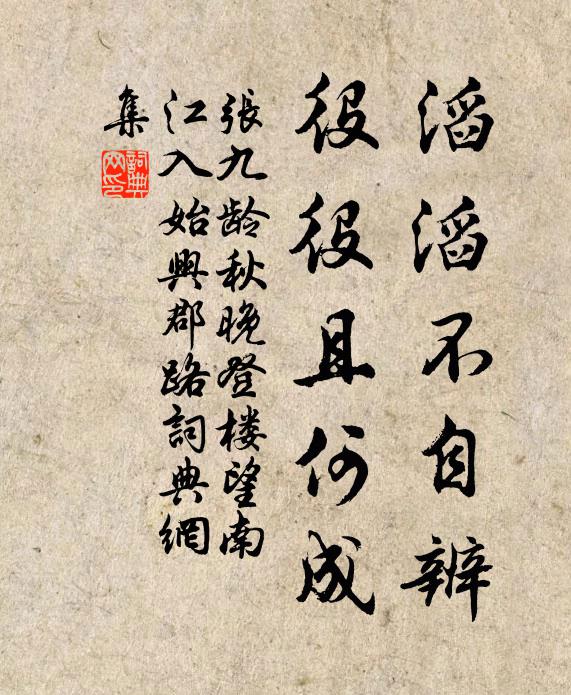 滔滔不自辨
役役且何成
張九龄秋晚登楼望南
江入始興郡路詞典網
集
詞典网印